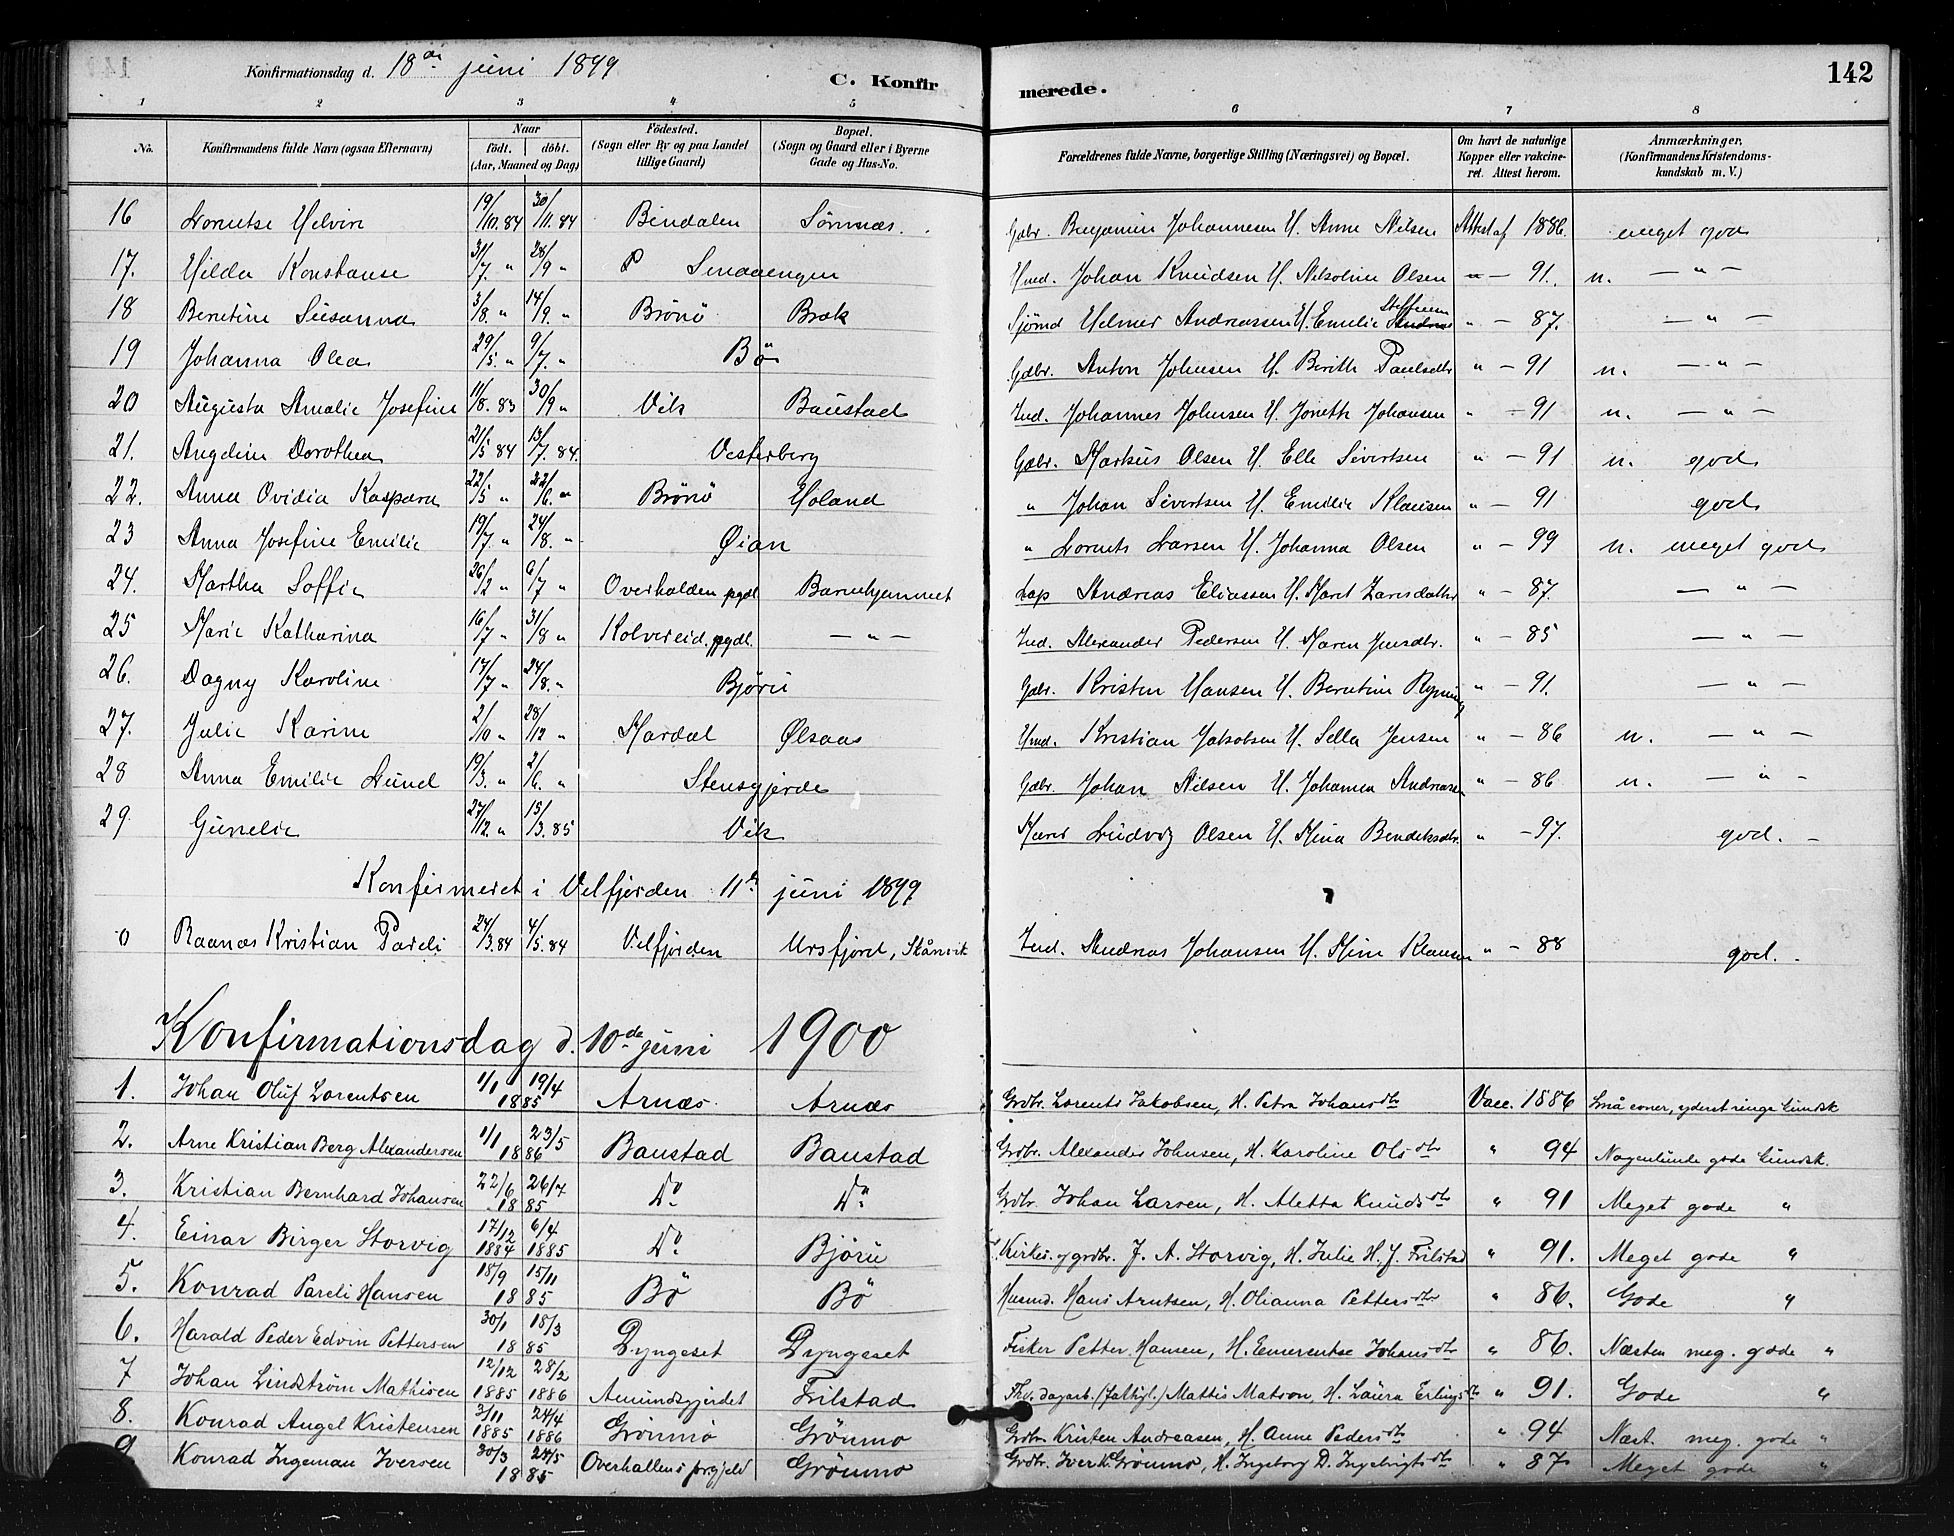 Konfirmationsdag d. 18de juni 1899
C. Konfirmerede.
142
1 2 3 4 5 6 7 8
No. Konfirmandens fulde Navn (ogsaa Efternavn) Naar födt. döbt. (Aar, Maaned og Dag) Födested. (Sogn eller By og paa Landet tillige Gaard) Bopæl. (Sogn og Gaard eller i Byerne Gade og Hus-No. Forældrenes fulde Navne, borgerlige Stilling (Næringsvei) og Bopæl. Om havt de naturlige Kopper eller vakcineret. Attest herom. Anmærkninger. (Konfirmandens Kristendomskundskab m. V.)
16 Lorntse Helvin 19/10.84 30/11.84 Bindalen Sörnæs. Gdbr. Benjamin Johannesen H. Anne Nilsen Attest af 1886. meget god
17. Hilda Konstanse 31/7 " 28/9 " Smaaengen Hmd. Johan Knudsen H. Nilsoline Olsen " — 91. n. — " —
18 Berntine Susanna 3/8. " 14/9. " Brönö Bræk Sjömd Helmer Andreassen H. Emelie Steffensen " — 87. — " —
19 Johanna Olea 29/5. " 9/7. " Bö Gdbr. Anton Johnsen H. Berith Paulsdtr " — 91 n. — " —
20 Augusta Amalie Josefine 11/8. 83 30/9 " Vik Baustad Ind. Johannes Johnsen H. Joneth Johansen " — 91 n. — " —
21. Angeline Dorothea 21/5 84 13/7. 84. Vesterberg Gdbr. Markus Olsen H. Elle Sivertsen " — 91 n. god
22. Anna Ovidia Kaspara 22/5 " 22/6. " Brönö Holand " Johan Sivertsen H. Emilie Klausen " — 91 god
23 Anna Josefine Emilie 19/7. " 24/8. " Øian " Lornts Larsen H. Johanna Olsen " — 99 n. meget god
24. Martha Soffie 26/2 " 6/7 " Overhalden pgdl Barnehjemmet Lap Andreas Eliassen H. Maret Larsdatter " — 87. — " —
25 Marie Katharina 16/7 " 31/8 " Kolvereid. pgdl. — " — Ind. Alexander Pedersen H. Maren Jensdtr. " — 85 — " —
26. Dagny Karoline 17/7 " 24/8. " Björu Gdbr. Kristen Hansen H. Berntine Ryning " — 91. — " —
27. Julie Karine 2/10 " 28/12 " Mardal Ølsaas Hmd. Kristian Jakobsen H. Sella Jensen " — 86 n. — " —
28 Anna Emilie Lund 19/3. " 2/6. " Stensgjerde Gdbr. Johan Nilsen H. Johanna Andreasen " — 86 n. — " —
29. Gunelie 27/12 " 15/3. 85 Vik Ludvig Olsen H. Mina Bendiksdtr. " — 97. god. —
Konfirmeret i Velfjorden 11te juni 1899
0 Raanæs Kristian Pareli 24/3.84 4/5.84 Velfjorden Ursfjord, Skånvik Ind. Andreas Johansen H. Mine Klausen " — 88 god.
Konfirmationsdag d. 10de juni 1900
1. Johan Oluf Lorentsen 1/1 19/4 1885 Arnæs. Arnæs Grdbr. Lorents Jakobsen, H. Petra Johansdtr Vacc. 1886 Små evner, yderst ringe kundsk
2. Arne Kristian Berg Alexandersen 1/1 23/5 1886 Baustad Baustad Grdbr. Alexander Johnsen, H. Karoline Olsdtr " 94 Nogenlunde gode kundsk.
3. Kristian Bernhard Johansen 22/6 26/7 1885 Do Do Grdbr. Johan Larsen, H. Aletta Knudsdtr " 91 Meget gode "
4. Einar Birger Storvig 17/12 1884 6/4 1885 Do. Björu Kirkes. og grdbr. J. A. Storvig, H. Julie H. J. Frilstad " 91. Meget gode "
5. Konrad Pareli Hansen 18/9 15/11 1885 Bö Bö Husmd. Hans Arntsen, H. Olianna Pettersdtr " 86. Gode "
6. Harald Peder Edvin Pettersen 30/1 18/3 1885 Dyngeset Dyngeset Fisker Petter Hansen, H. Emerentse Johansdtr " 86. Næsten meg. gode "
7 Johan Lindström Mathisen 12/12 1885 28/2 1886 Amundsgjerdet Frilstad dagarb. (fattigl.) Mattis Matson, H. Laura Erlingsdtr " 91. Gode "
8. Konrad Angel Kristensen 3/11 1885 24/4 1886 Grönmo Grönmo Grdbr. Kristen Andreasen, H. Anne Pedersdtr " 94 Næst. meg. gode "
9 Konrad Ingeman Iversen 30/3 24/5 1885 Overhallens prgjeld Grönmo Grdbr. Iver K. Grönmo, H. Ingeborg D. Ingebrigtsdtr " 87 Meget gode "